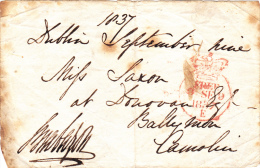 1837
Dublin September nine
Miss Saxon
at Donovan Esqr
Ballymon
Camolin